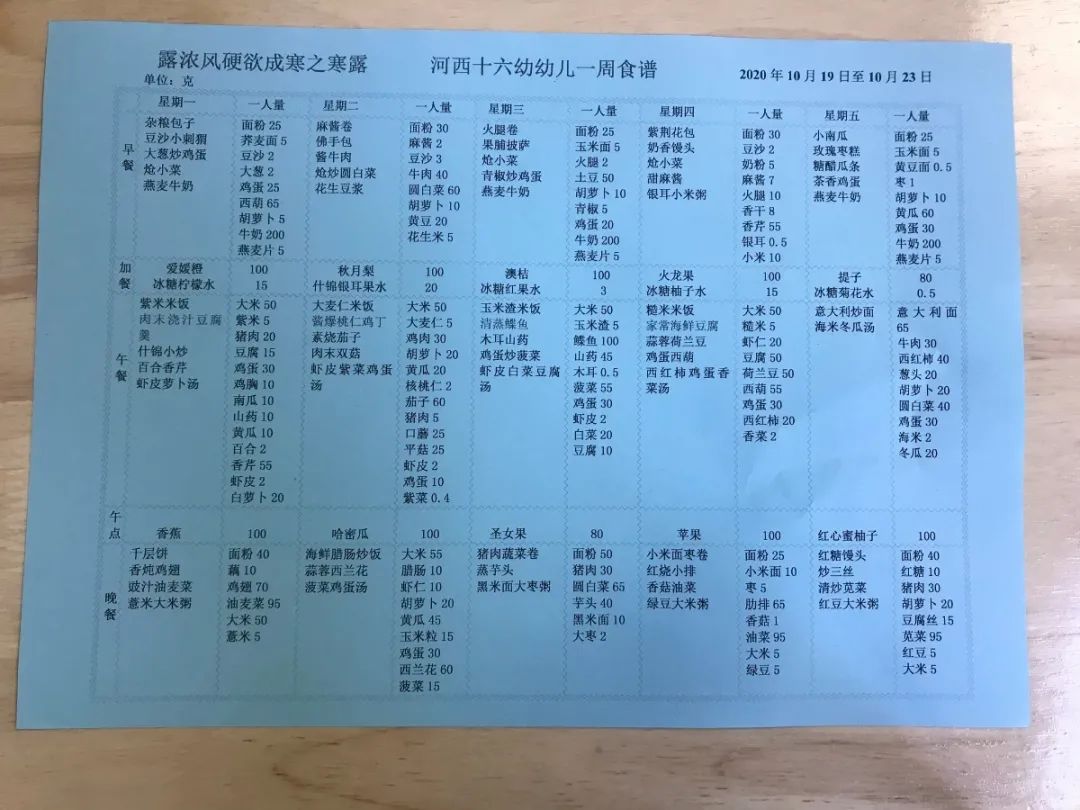 露浓风硬欲成寒之寒露 河西十六幼幼儿一周食谱 2020年10月19日至10月23日
单位：克
星期一 一人量 星期二 一人量 星期三 一人量 星期四 一人量 星期五 一人量
早餐
杂粮包子
豆沙小刺猬
大葱炒鸡蛋
炝小菜
燕麦牛奶
面粉 25
荞麦面 5
豆沙 2
大葱 2
鸡蛋 25
西葫 65
胡萝卜 5
牛奶 200
燕麦片 5
麻酱卷
佛手包
酱牛肉
炝炒圆白菜
花生豆浆
面粉 30
麻酱 2
豆沙 3
牛肉 40
圆白菜 60
胡萝卜 10
黄豆 20
花生米 5
火腿卷
果脯披萨
炝小菜
青椒炒鸡蛋
燕麦牛奶
面粉 25
玉米面 5
火腿 2
土豆 50
胡萝卜 10
青椒 5
鸡蛋 20
牛奶 200
燕麦片 5
紫荆花包
奶香馒头
炝小菜
甜麻酱
银耳小米粥
面粉 30
豆沙 2
奶粉 5
麻酱 7
火腿 10
香干 8
香芹 55
银耳 0.5
小米 10
小南瓜
玫瑰枣糕
糖醋瓜条
茶香鸡蛋
燕麦牛奶
面粉 25
玉米面 5
黄豆面 0.5
枣 1
胡萝卜 10
黄瓜 60
鸡蛋 30
牛奶 200
燕麦片 5
加餐
爱媛橙 100 秋月梨 100 澳桔 100 火龙果 100 提子 80
冰糖柠檬水 15 什锦银耳果水 20 冰糖红果水 3 冰糖柚子水 15 冰糖菊花水 0.5
午餐
紫米米饭
肉末浇汁豆腐
羹
什锦小炒
百合香芹
虾皮萝卜汤
大米 50
紫米 5
猪肉 20
豆腐 15
鸡蛋 30
鸡胸 10
南瓜 10
山药 10
黄瓜 10
百合 2
香芹 55
虾皮 2
白萝卜 20
大麦仁米饭
酱爆桃仁鸡丁
素烧茄子
肉末双菇
虾皮紫菜鸡蛋
汤
大米 50
大麦仁 5
鸡肉 30
胡萝卜 20
黄瓜 20
核桃仁 2
茄子 60
猪肉 5
口蘑 25
平菇 25
虾皮 2
鸡蛋 10
紫菜 0.4
玉米渣米饭
清蒸鲽鱼
木耳山药
鸡蛋炒菠菜
虾皮白菜豆腐
汤
大米 50
玉米渣 5
鲽鱼 100
山药 45
木耳 0.5
菠菜 55
鸡蛋 30
虾皮 2
白菜 20
豆腐 10
糙米米饭
家常海鲜豆腐
蒜蓉荷兰豆
鸡蛋西葫
西红柿鸡蛋香
菜汤
大米 50
糙米 5
虾仁 20
豆腐 50
荷兰豆 50
西葫 55
鸡蛋 30
西红柿 20
香菜 2
意大利炒面
海米冬瓜汤
意大利面
65
牛肉 30
西红柿 40
葱头 20
胡萝卜 20
圆白菜 40
鸡蛋 30
海米 2
冬瓜 20
午点
香蕉 100 哈密瓜 100 圣女果 80 苹果 100 红心蜜柚子 100
晚餐
千层饼
香炖鸡翅
豉汁油麦菜
薏米大米粥
面粉 40
藕 10
鸡翅 70
油麦菜 95
大米 50
薏米 5
海鲜腊肠炒饭
蒜蓉西兰花
菠菜鸡蛋汤
大米 55
腊肠 10
虾仁 10
胡萝卜 20
黄瓜 45
玉米粒 15
鸡蛋 30
西兰花 60
菠菜 15
猪肉蔬菜卷
蒸芋头
黑米面大枣粥
面粉 50
猪肉 30
圆白菜 65
芋头 40
黑米面 10
大枣 2
小米面枣卷
红烧小排
香菇油菜
绿豆大米粥
面粉 25
小米面 10
枣 5
肋排 65
香菇 1
油菜 95
大米 5
绿豆 5
红糖馒头
炒三丝
清炒苋菜
红豆大米粥
面粉 40
红糖 10
猪肉 30
胡萝卜 20
豆腐丝 15
苋菜 95
红豆 5
大米 5